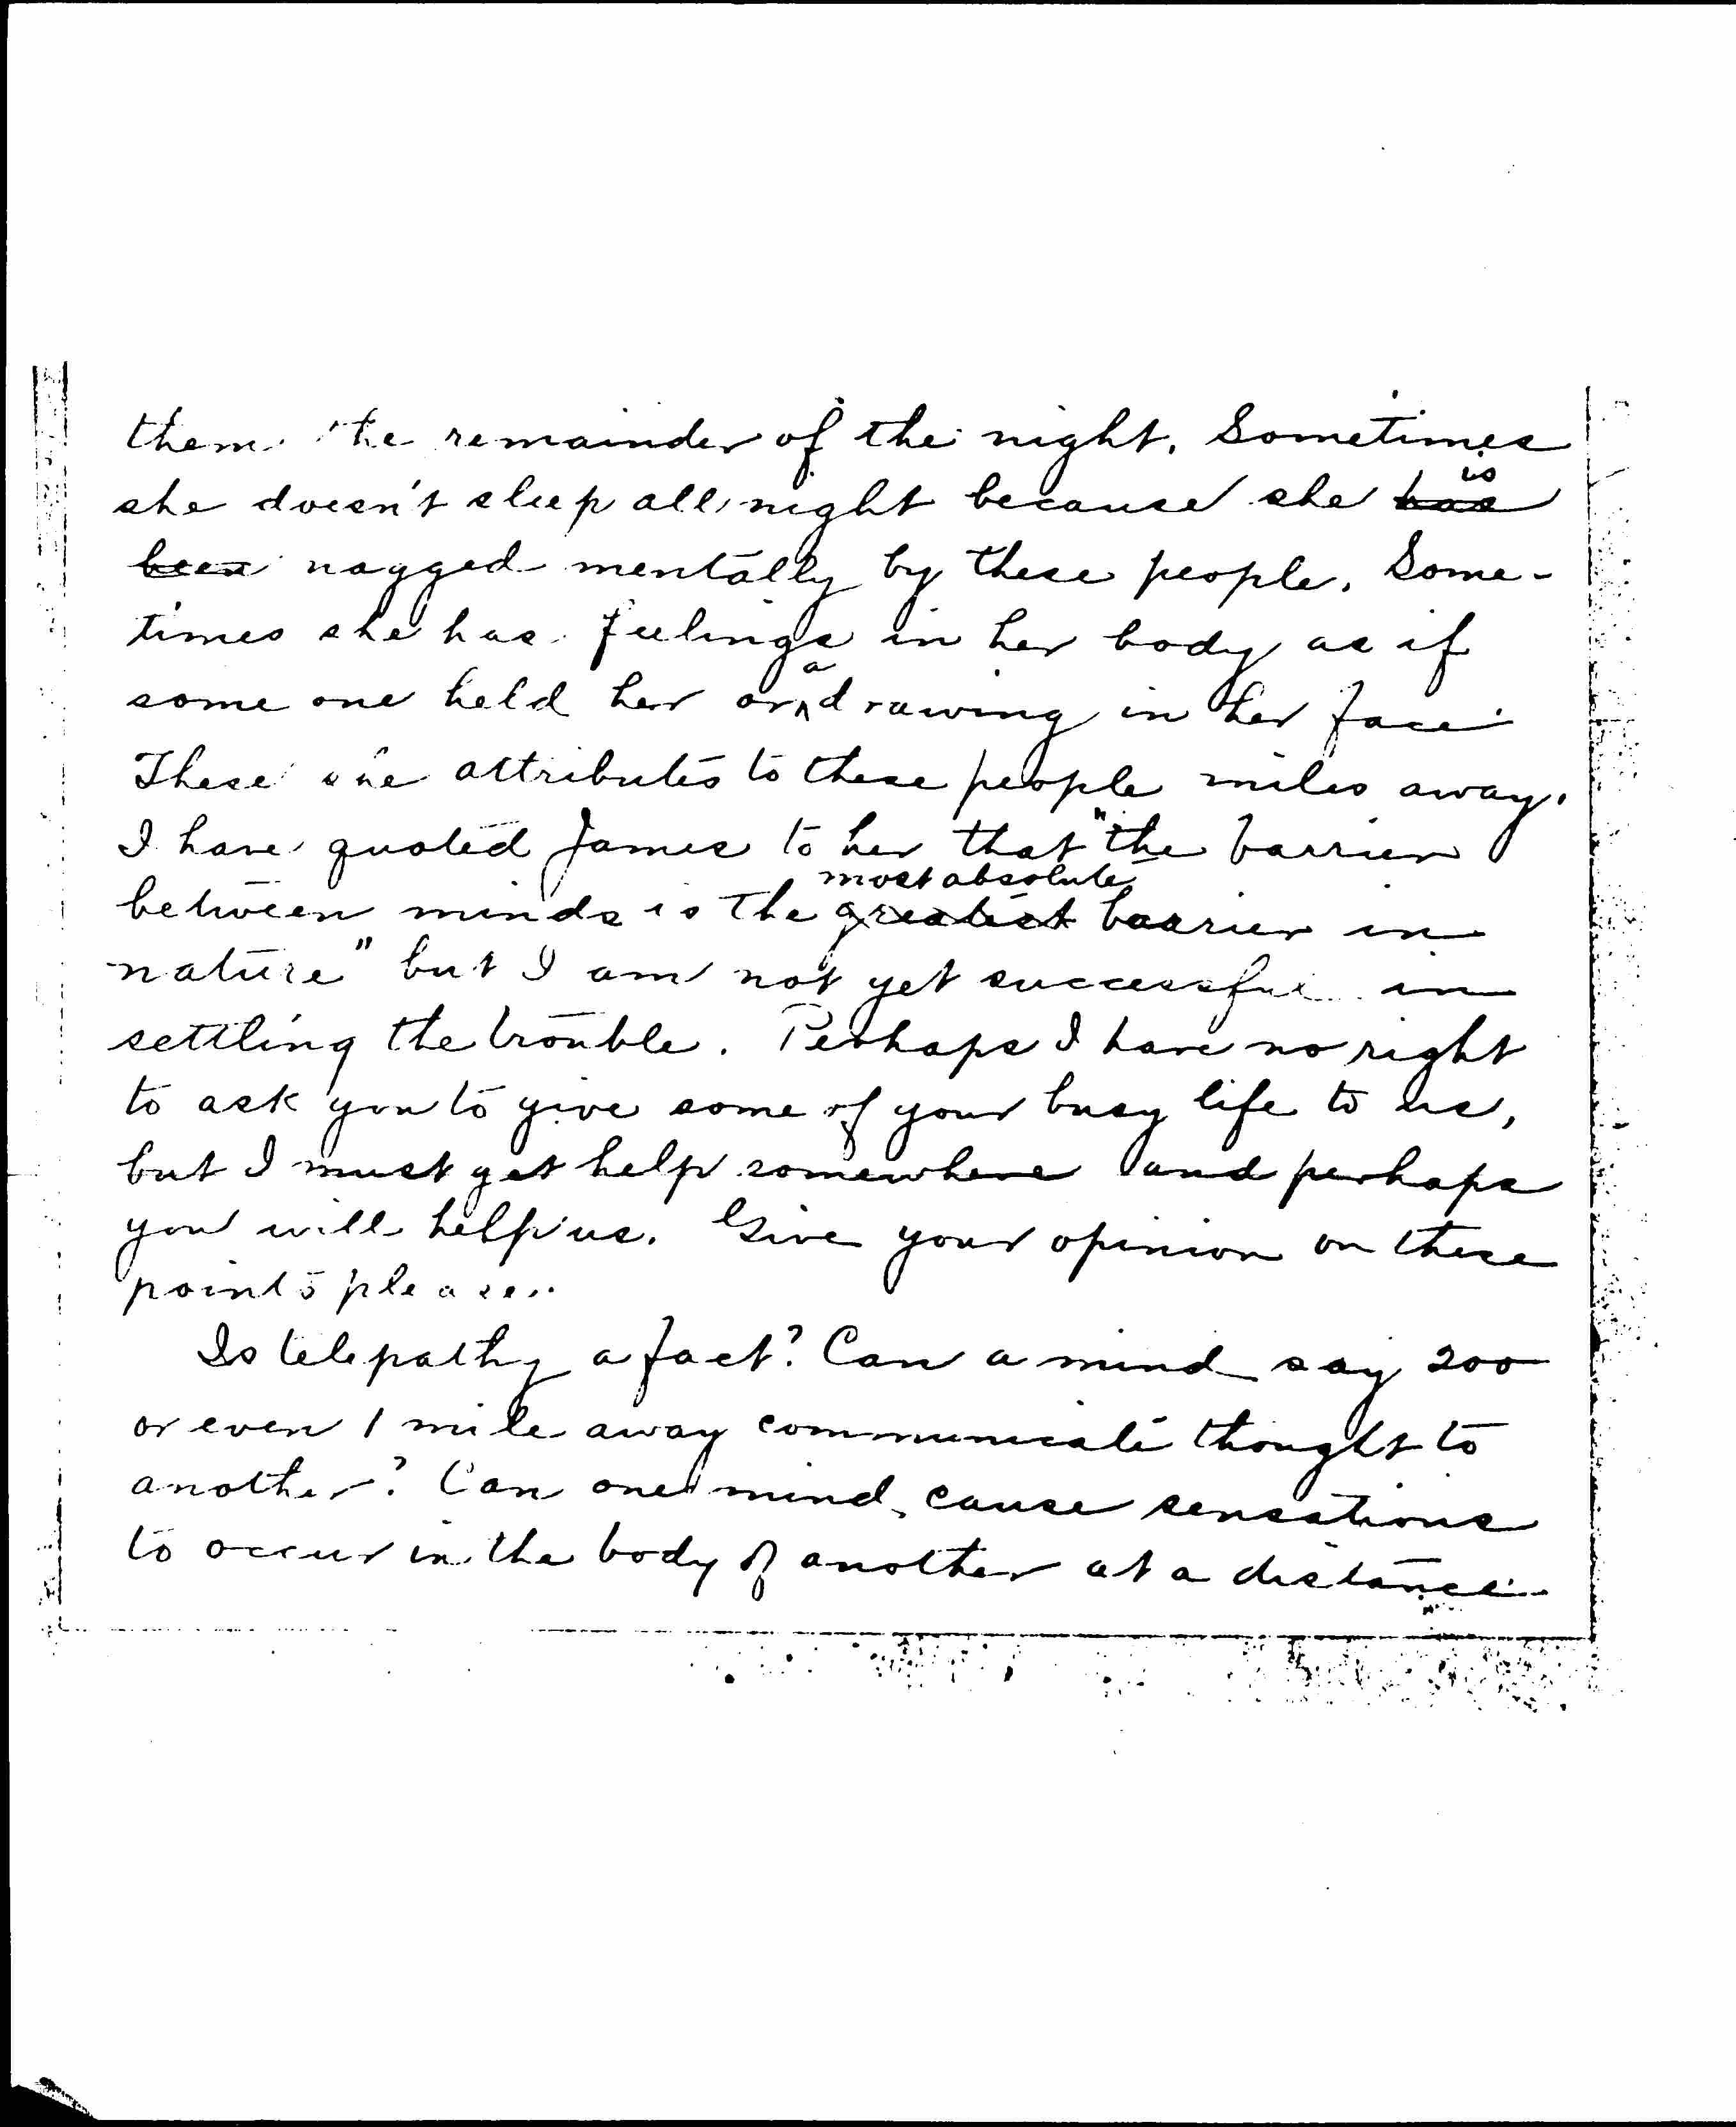 them the remainder of the night. Sometimes
is
she doesn't sleep all night because she has
been nagged mentally by these people. Some-
times she has feelings in her body as if
a
some one held her or drawing in her face.
These she attributes to these people miles away.
I have quoted James to her that "the barrier
most absolute
between minds is the greatest barrier in
nature" but I am not yet successful in
settling the trouble. Perhaps I have no right
to ask you to give some of your busy life to us,
but I must get help somewhere and perhaps
you will help us. Give your opinion on these
points please.
Is telepathy a fact? Can a mind say 200
or even 1 mile away communicate thought to
another? Can one mind cause sensations
to occur in the body of another at a distance